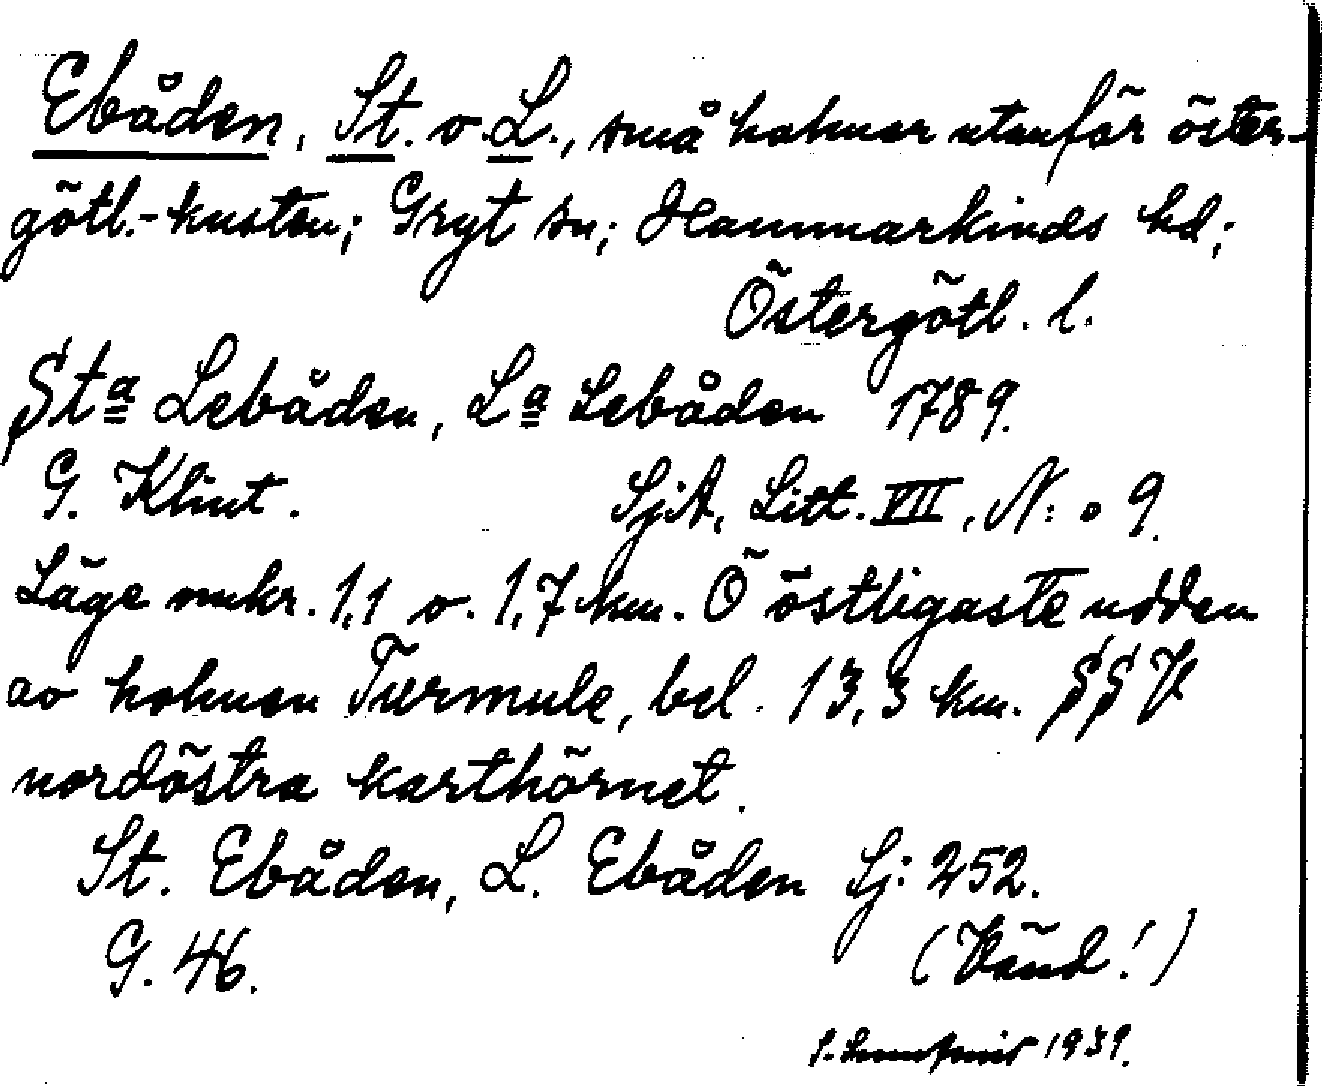 Ebåden, St. o. L., små holmar utanför öster-
götl.-kusten; Gryt sn; Hammarkinds hd;
Östergötl. l.
Sta Lebåden, La Lebåden 1789.
G. Klint. SjA, Litt. VII, N:o 9.
Läge mkr. 1,1 o. 1,7 km. Ö östligaste udden
av holmen Turmule, bel. 13,3 km. SSV
nordöstra karthörnet.
St. Ebåden, L. Ebåden Sj: 252.
G. 46. (Vänd!)
1939.